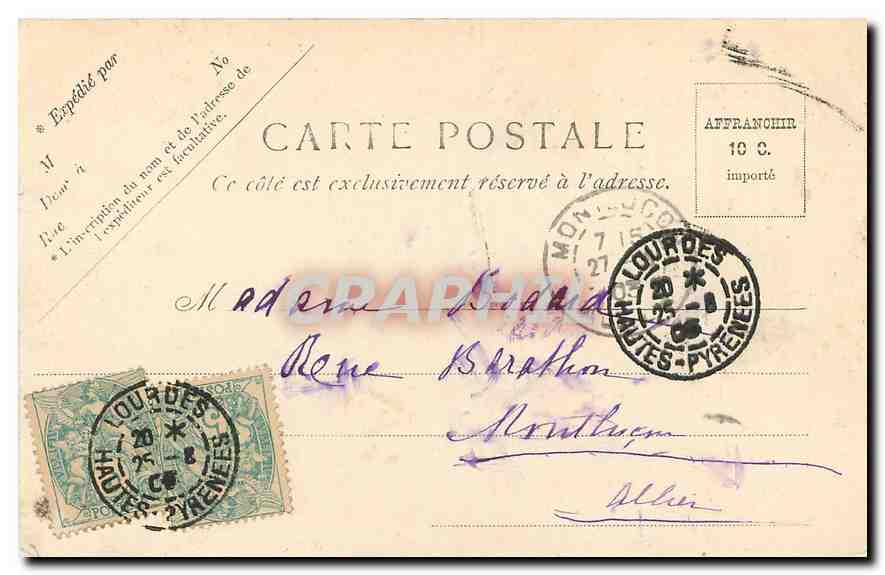 * Expédié par
M
No
Rue
* L'inscription du nom et de l'adresse de
l'expéditeur est facultative.
CARTE POSTALE
Ce côté est exclusivement réservé à l'adresse.
AFFRANCHIR
10 C.
importé
7 15
27
LOURDES
20 *
25 - 8
HAUTES-PYRENEES
Madame Bodard
Rue Barathon
Montluçon
Allier
LOURDES
20 *
25 - 8
HAUTES-PYRENEES